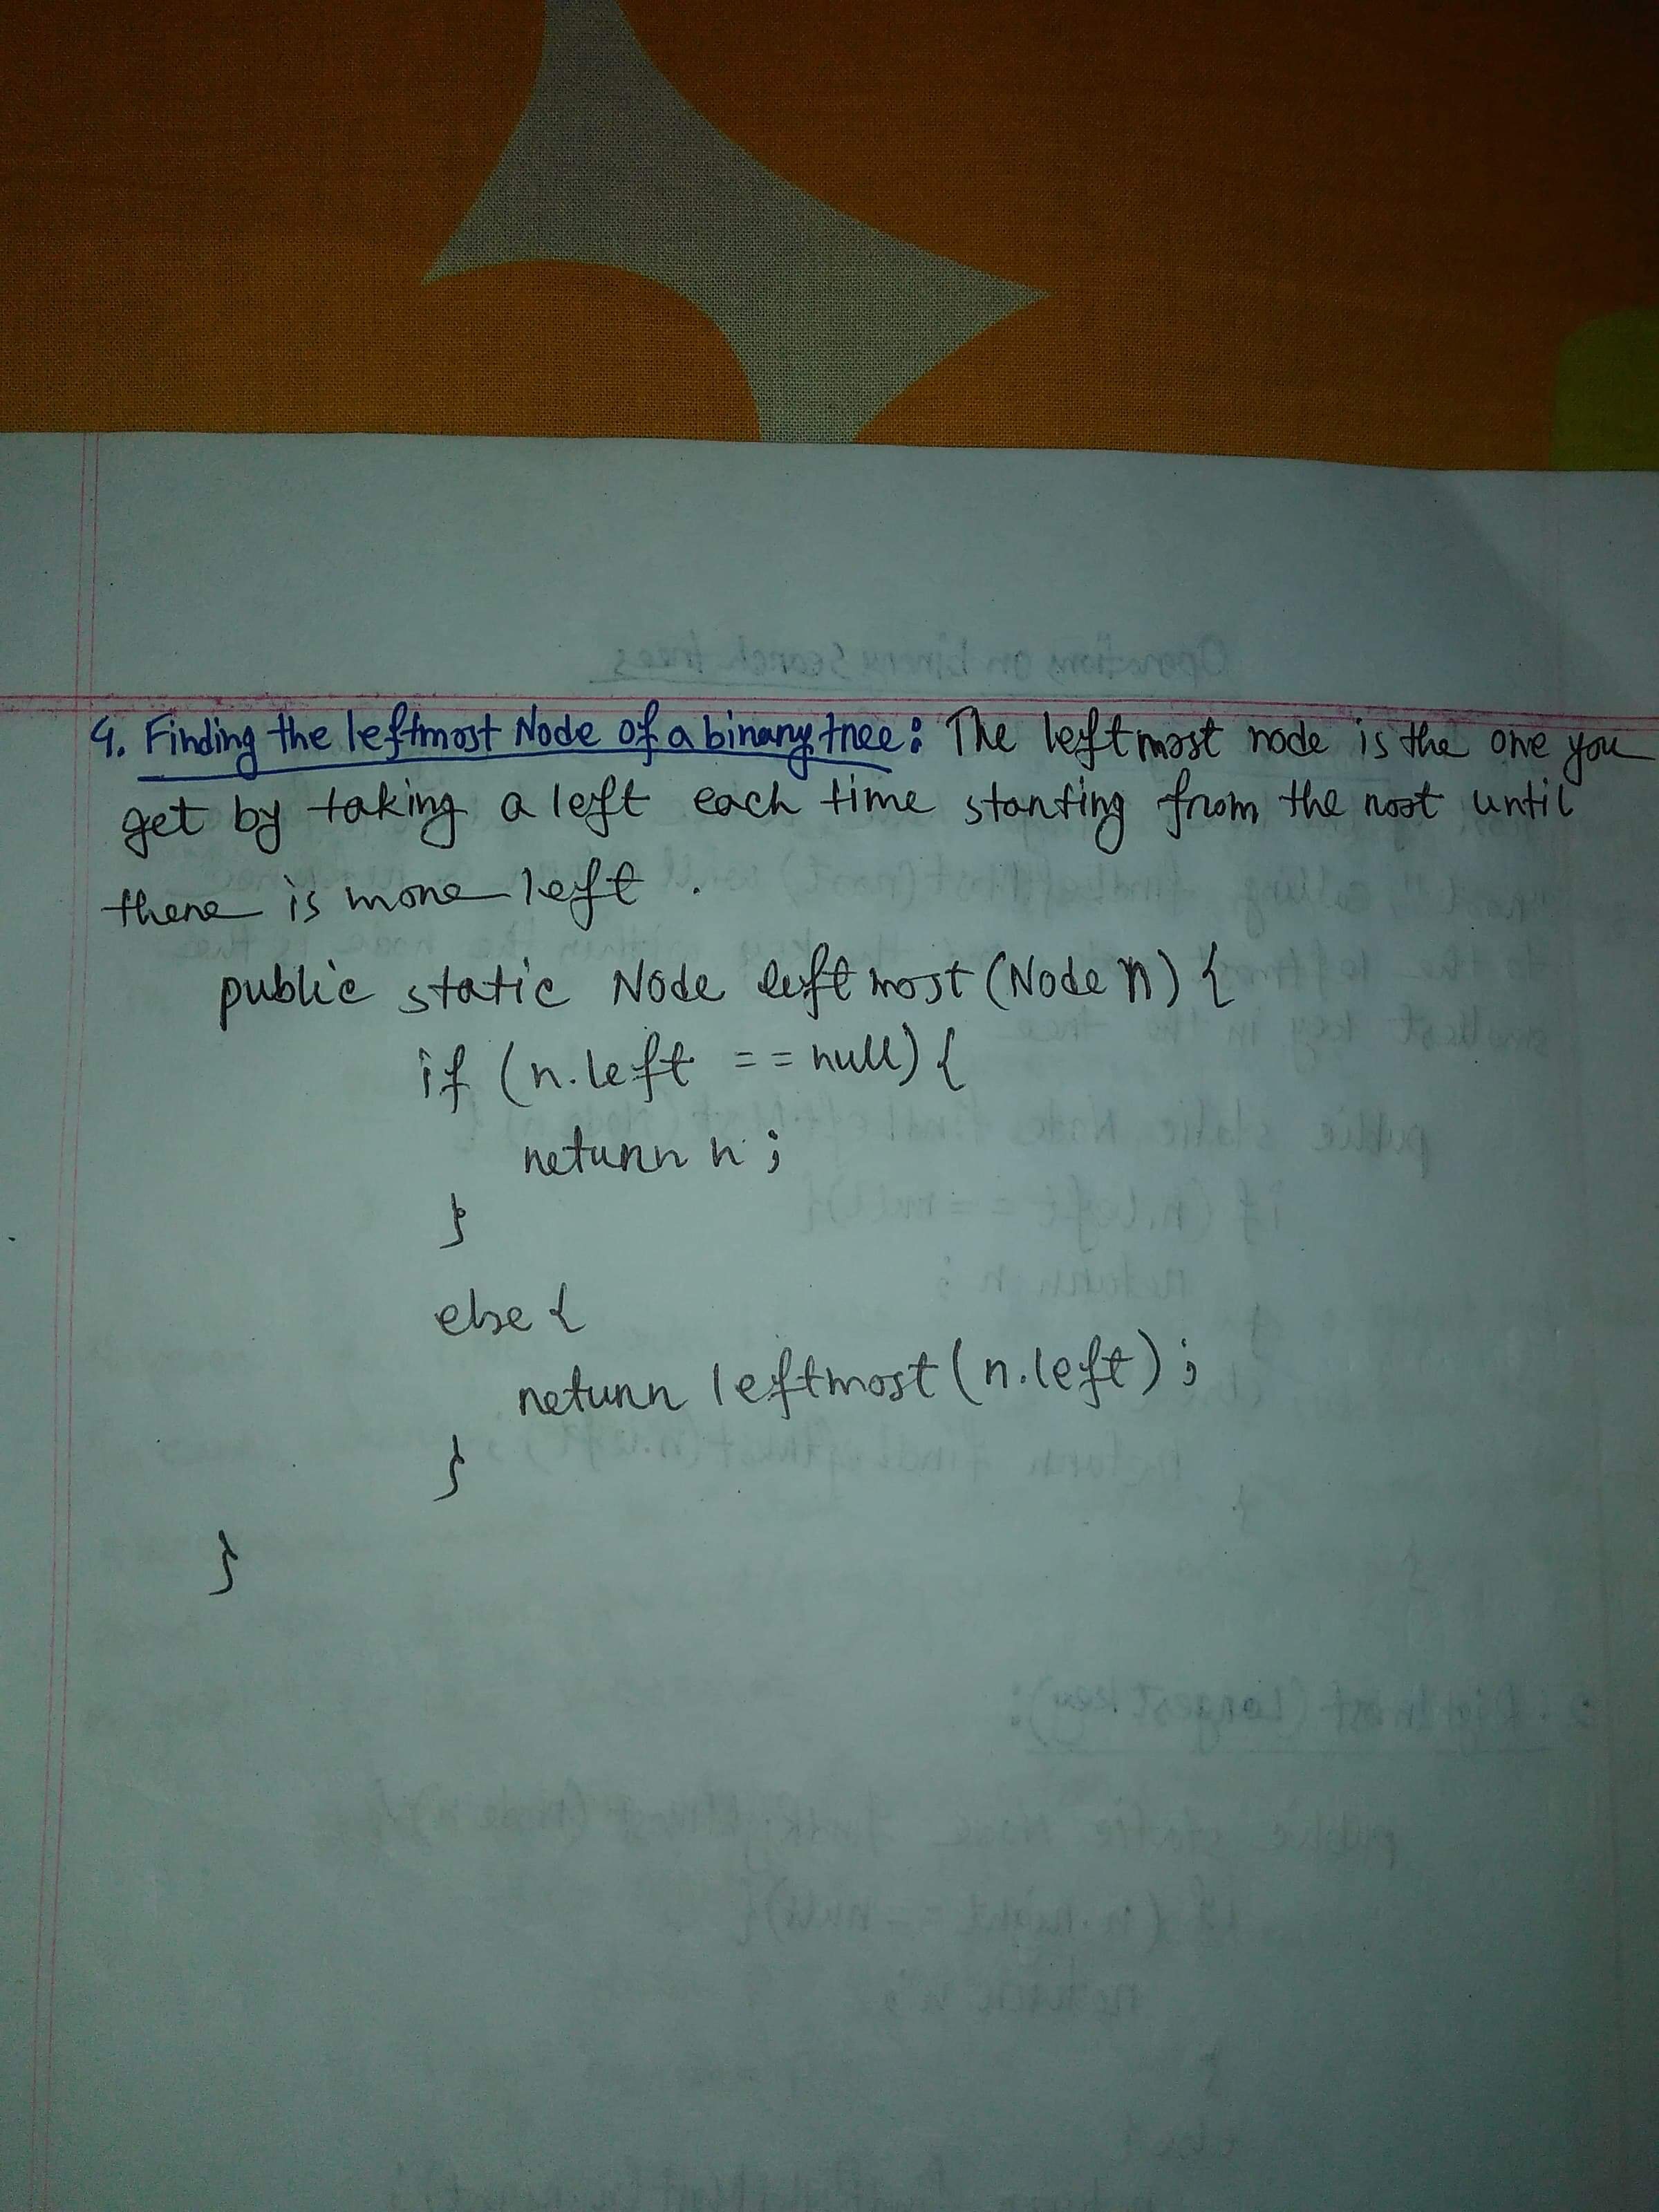 4. Finding the leftmost Node of a binary tree: The leftmost node is the one you
get by taking a left each time starting from the root until
there is more left.
public static Node leftmost(Node n) {
if (n.left == null) {
return n;
}
else {
return leftmost(n.left);
}
}